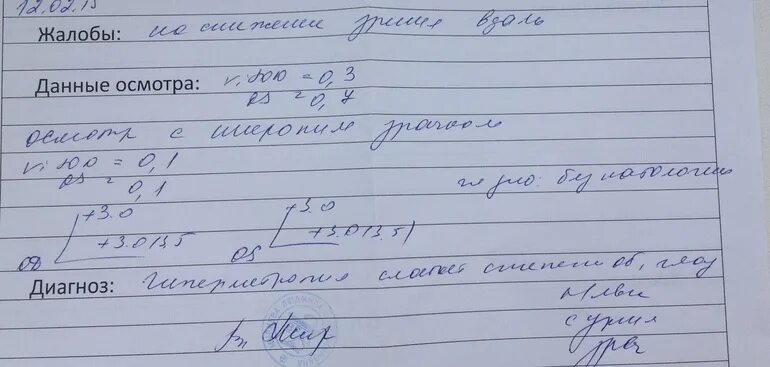 12.02.15
Жалобы: на снижение зрения вдаль
Данные осмотра: vis OD = 0,3
OS = 0,7
осмотр с широким зрачком
vis OD = 0,1
OS = 0,1
гл. дно: без патологии
+3.0
+3.0
OD +3.0 (3.5
OS +3.0 (3.5)
Диагноз: Гиперметропия слабой степени об. глаз